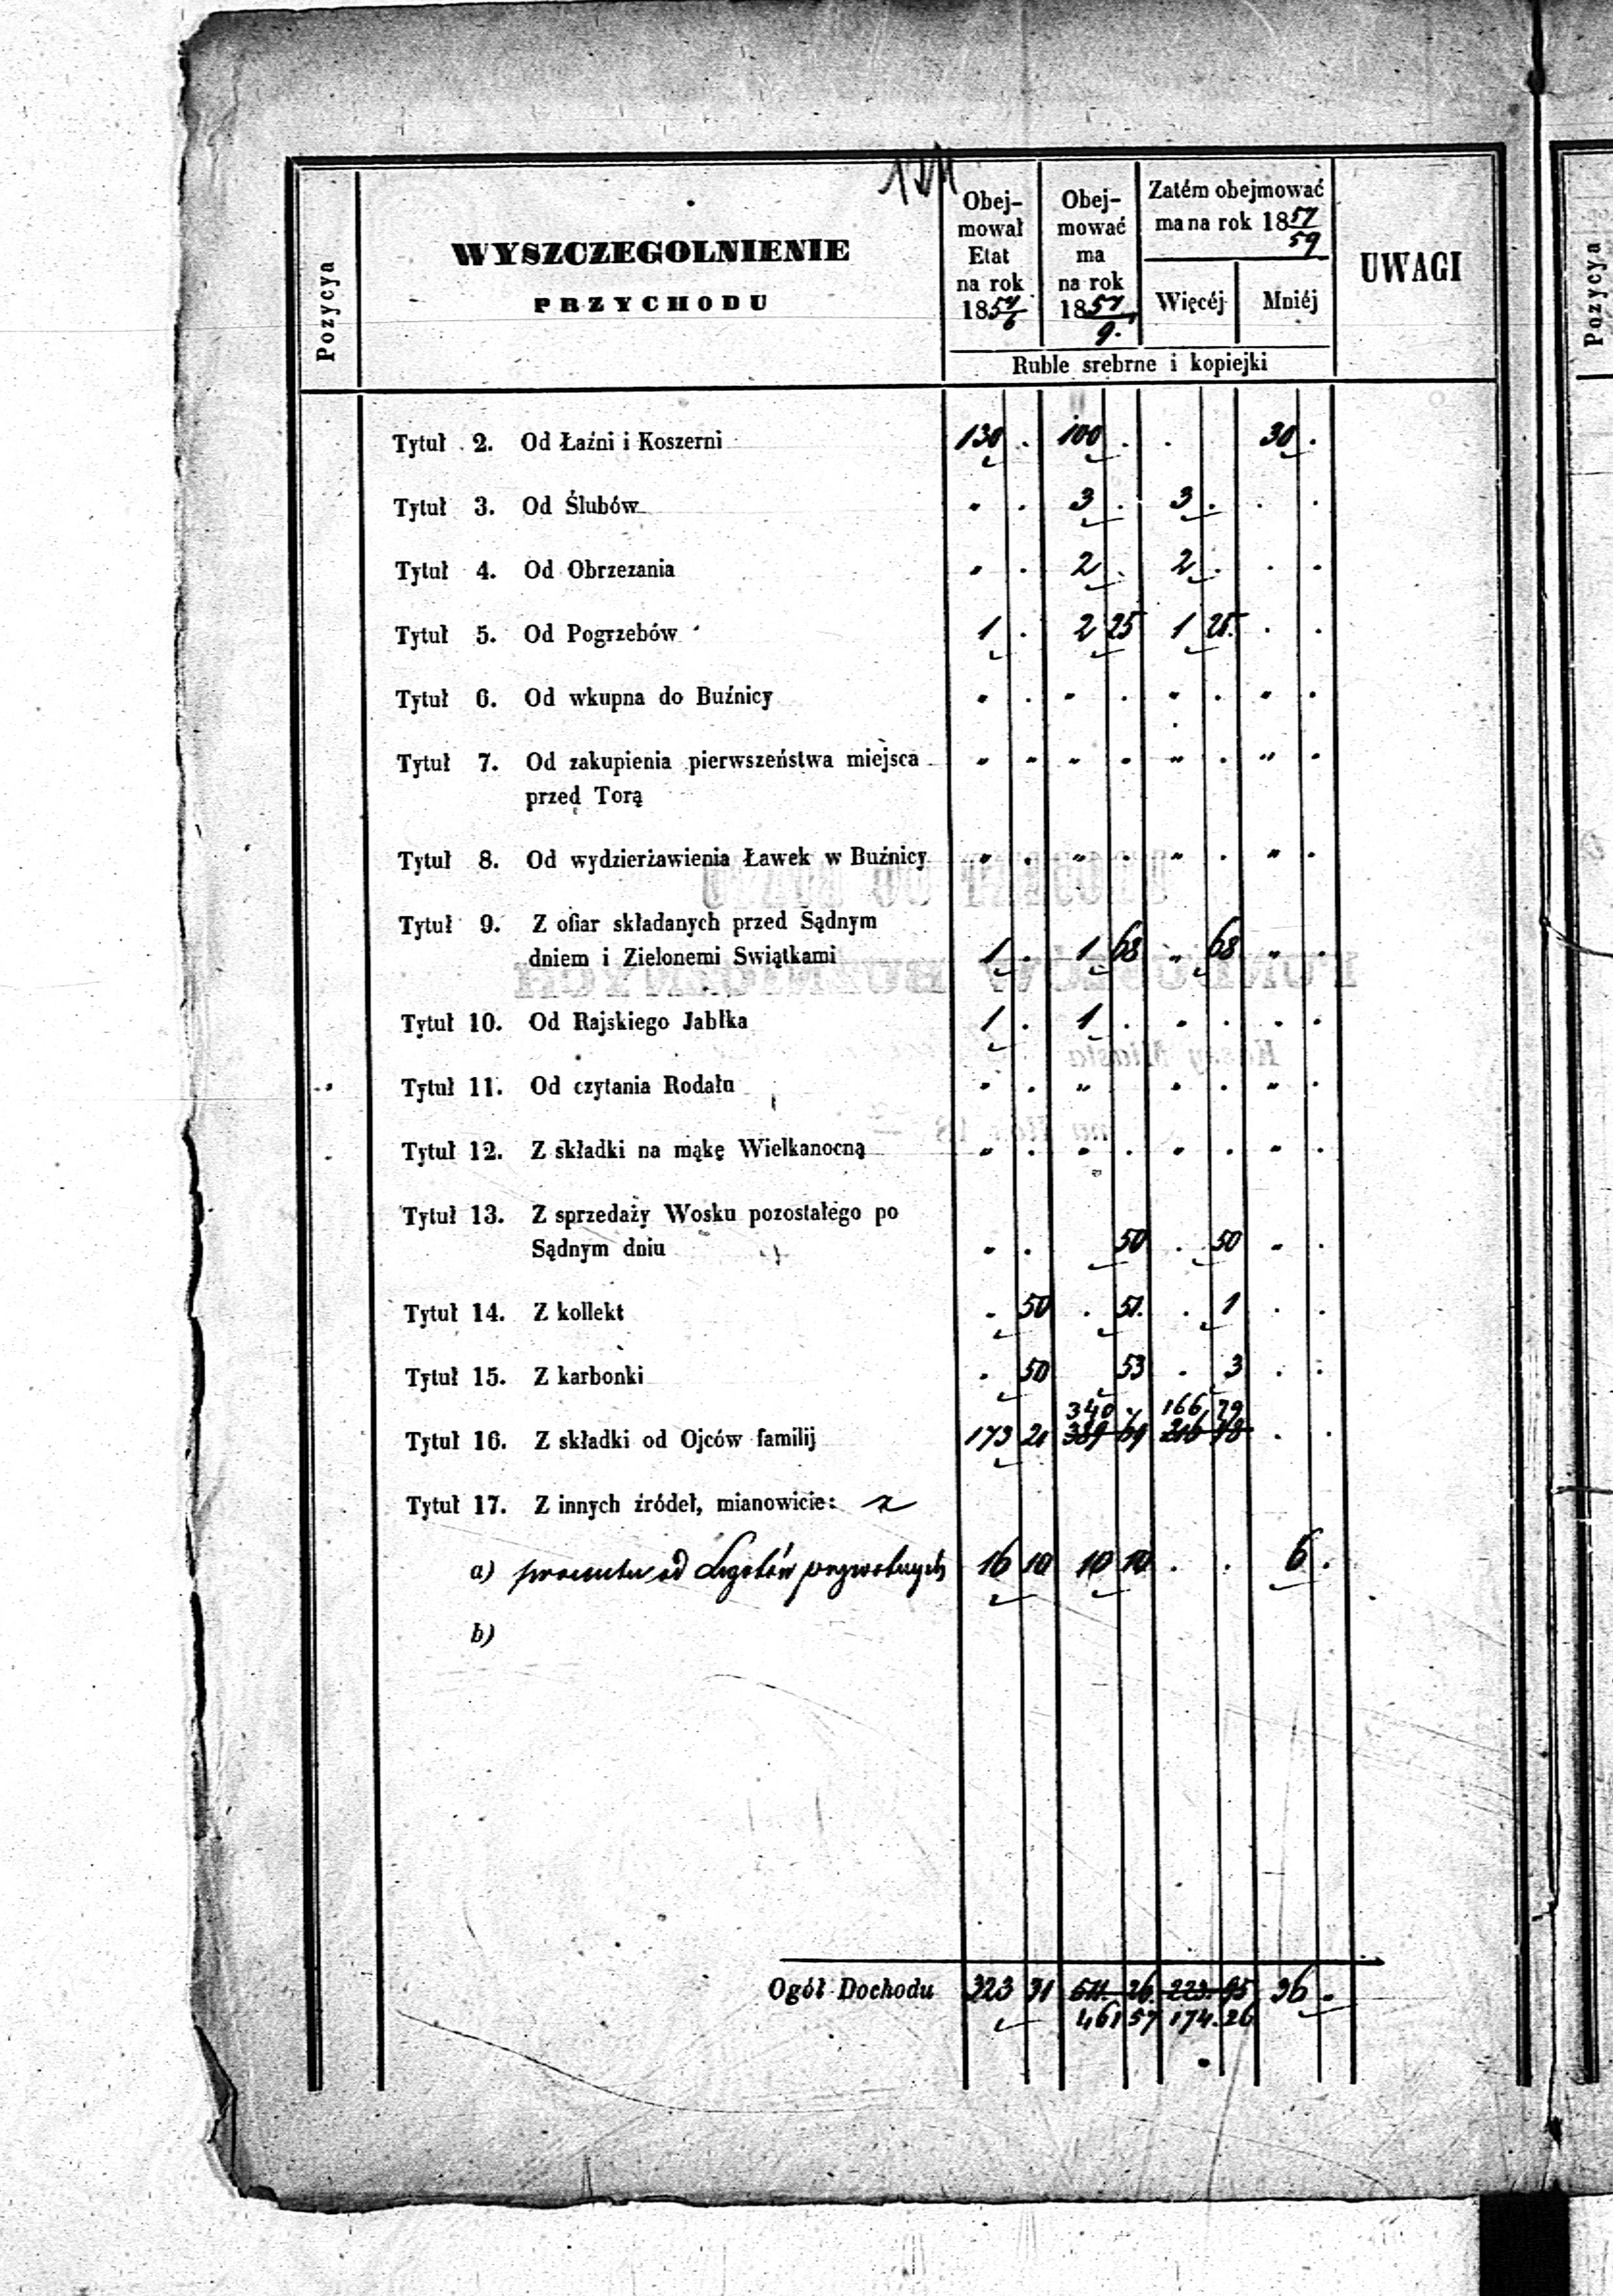 Pozycya
WYSZCZEGOLNIENIE
PRZYCHODU
Obej-
mował
Etat
na rok
18 54/6
Obej-
mować
ma
na rok
18 57/9.
Zatém obejmować
ma na rok 18 57/59
Więcéj
Mniéj
Ruble srebrne i kopiejki
UWAGI
Pozycya
Tytuł 2. Od Łaźni i Koszerni 130 . 100 . . 30 .
Tytuł 3. Od Ślubów . . 3 . 3 . . .
Tytuł 4. Od Obrzezania . . 2 . 2 . . .
Tytuł 5. Od Pogrzebów 1 . 2 25 1 25. . .
Tytuł 6. Od wkupna do Buźnicy . . . . . . . .
Tytuł 7. Od zakupienia pierwszeństwa miejsca
przed Torą
Tytuł 8. Od wydzierżawienia Ławek w Buźnicy
Tytuł 9. Z ofiar składanych przed Sądnym
dniem i Zielonemi Swiątkami 1 . 1 68 „ 68 „ .
Tytuł 10. Od Rajskiego Jabłka 1 . 1 . . . . .
Tytuł 11. Od czytania Rodału
Tytuł 12. Z składki na mąkę Wielkanocną
Tytuł 13. Z sprzedaży Wosku pozostałego po
Sądnym dniu . . 50 . 50 . .
Tytuł 14. Z kollekt . 50 . 51. . 1 . .
Tytuł 15. Z karbonki . 50 53 . 3 . .
340 „ 166 79
Tytuł 16. Z składki od Ojców familij 173 21 389 69 216 48 . .
Tytuł 17. Z innych źródeł, mianowicie: z
a) procentu od Legatów prywatnych 16 10 10 10 . . 6 .
b)
Ogół Dochodu 323 31 511. 26. 223. 95 36 .
461 57 174. 26